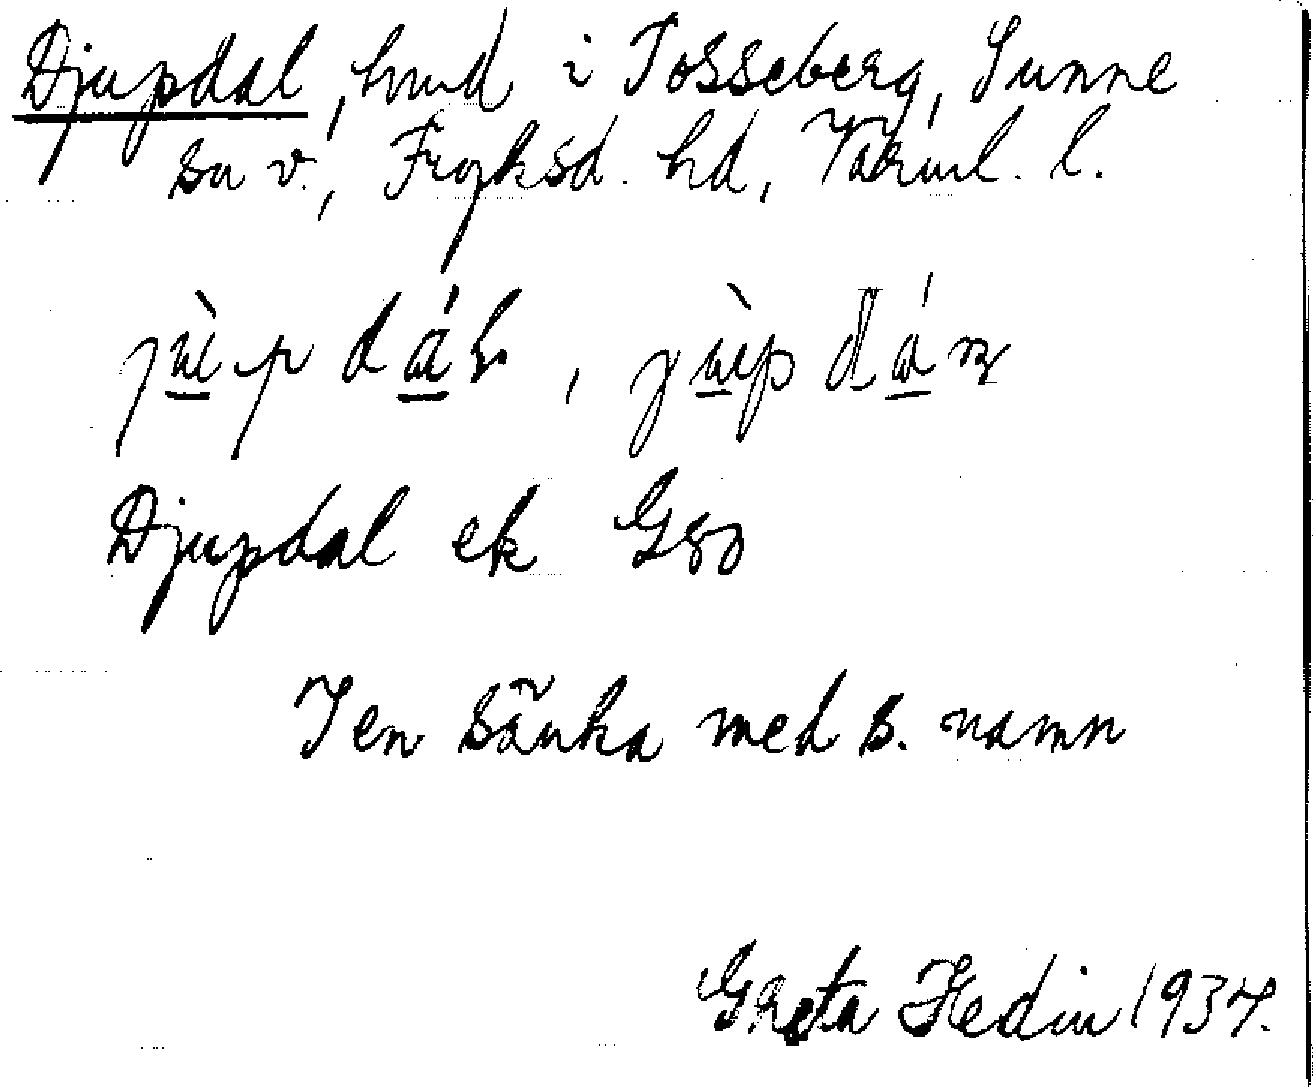 Djupdal, hmd i Tosseberg, Sunne
sn v., Fryksd. hd, Värml. l.
Djupdal ek G80
I en sänka med s. namn
Greta Hedin 1934.